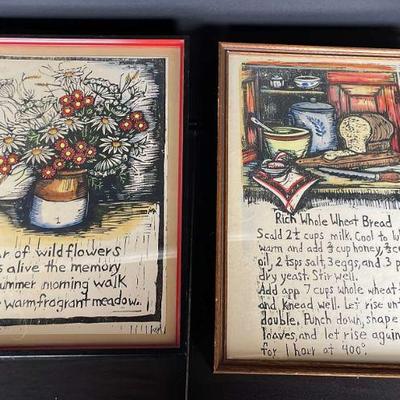 ar of wildflowers
s alive the memory
ummer morning walk
e warm fragrant meadow.
Rich Whole Wheat Bread
Scald 2¼ cups milk. Cool to
warm and add ⅓ cup honey,
oil, 2 tsps salt, 3 eggs, and 3 p
dry yeast. Stir well.
Add app. 7 cups whole wheat
and knead well. Let rise unt
double. Punch down, shape
loaves, and let rise again
for 1 hour at 400°.